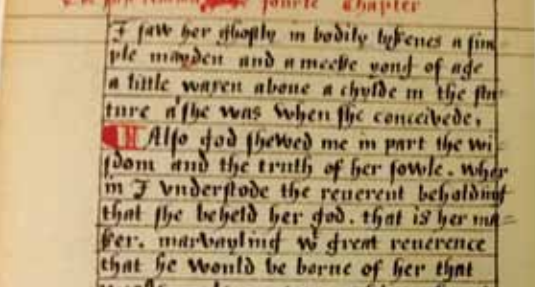 fourth Chapter
I saw her ghostly in bodily lykenes a sim
ple mayden and a meeke yong of age
a little waxen aboue a chylde in the sta
ture as she was when she conceivede.
Also god shewed me in part the wi
sdom and the truth of her sowle. wher
in I vnderstode the reuerent beholding
that she beheld her god. that is her ma=
ker. marvayling wt great reuerence
that he would be borne of her that